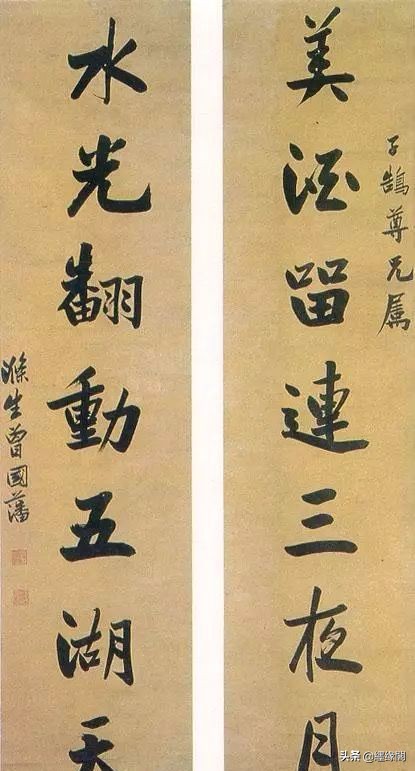 子鶴尊兄屬
美酒留連三夜月
水光翻動五湖天
滌生曾國藩
头条 @